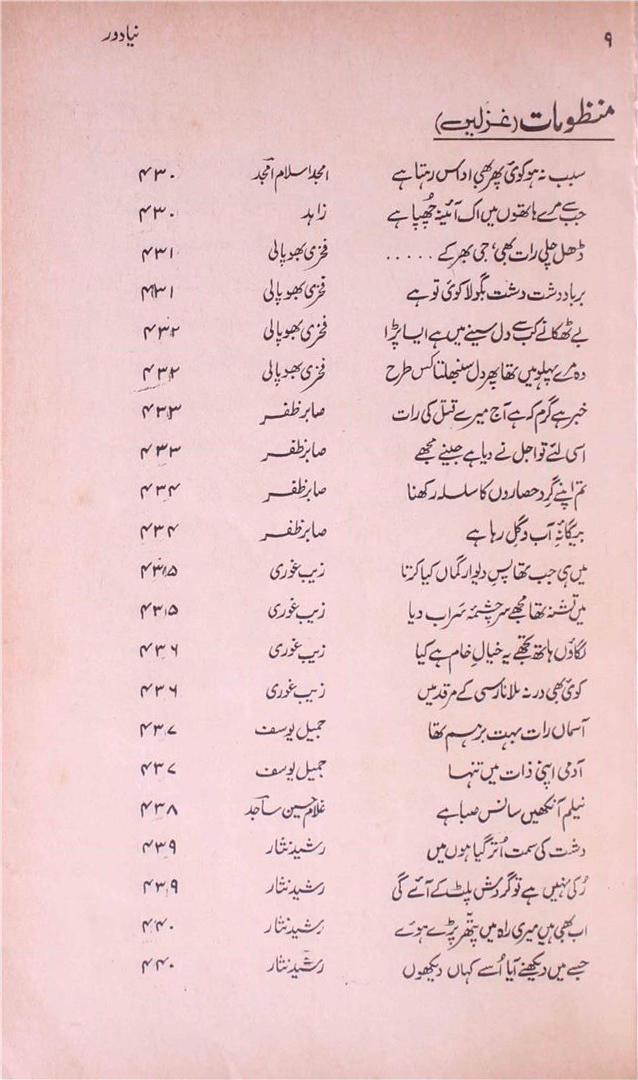 ۹ نیا دور
منظومات (غزلیں)
سبب نہ ہو کوئی پھر بھی اداس رہتا ہے امجد اسلام امجد ۴۳۰
جب سے مرے ہاتھوں میں اک آئینہ چھپا ہے زاہد ۴۳۰
ڈھل چلی رات بھی، جی بھر کے ..... فخری بھوپالی ۴۳۱
برباد دشت دشت بگولا کوئی تو ہے فخری بھوپالی ۴۳۱
بے ٹھکانے کب سے دل سینے میں ہے ایسا پڑا فخری بھوپالی ۴۳۲
وہ مرے پہلو میں تھا پھر دل سنبھلتا کس طرح فخری بھوپالی ۴۳۲
خبر ہے گرم کہ ہے آج میرے قتل کی رات صابر ظفر ۴۳۳
اسی لئے تو اجل نے دیا ہے جینے مجھے صابر ظفر ۴۳۳
تم اپنے گرد حصاروں کا سلسلہ رکھنا صابر ظفر ۴۳۴
بیگانۂ آب و گِل رہا ہے صابر ظفر ۴۳۴
میں ہی جب تھا پسِ دیوارِ گماں کیا کرتا زیب غوری ۴۳۵
میں تشنہ تھا مجھے سرچشمۂ سراب دیا زیب غوری ۴۳۵
لگاؤں ہاتھ تجھے یہ خیالِ خام ہے کیا زیب غوری ۴۳۶
کوئی بھی در نہ ملا نارسی کے مرقد میں زیب غوری ۴۳۶
آسماں رات بہت برہم تھا جمیل یوسف ۴۳۷
آدمی اپنی ذات میں تنہا جمیل یوسف ۴۳۷
نیلم آنکھیں سانس صبا ہے غلام حسین ساجد ۴۳۸
دشت کی سمت اُتر گیا ہوں میں رشید نثار ۴۳۹
رُکی نہیں ہے تو گردش پلٹ کے آئے گی رشید نثار ۴۳۹
اب بھی ہیں میری راہ میں پتھر پڑے ہوئے رشید نثار ۴۴۰
جسے میں دیکھنے آیا اُسے کہاں دیکھوں رشید نثار ۴۴۰